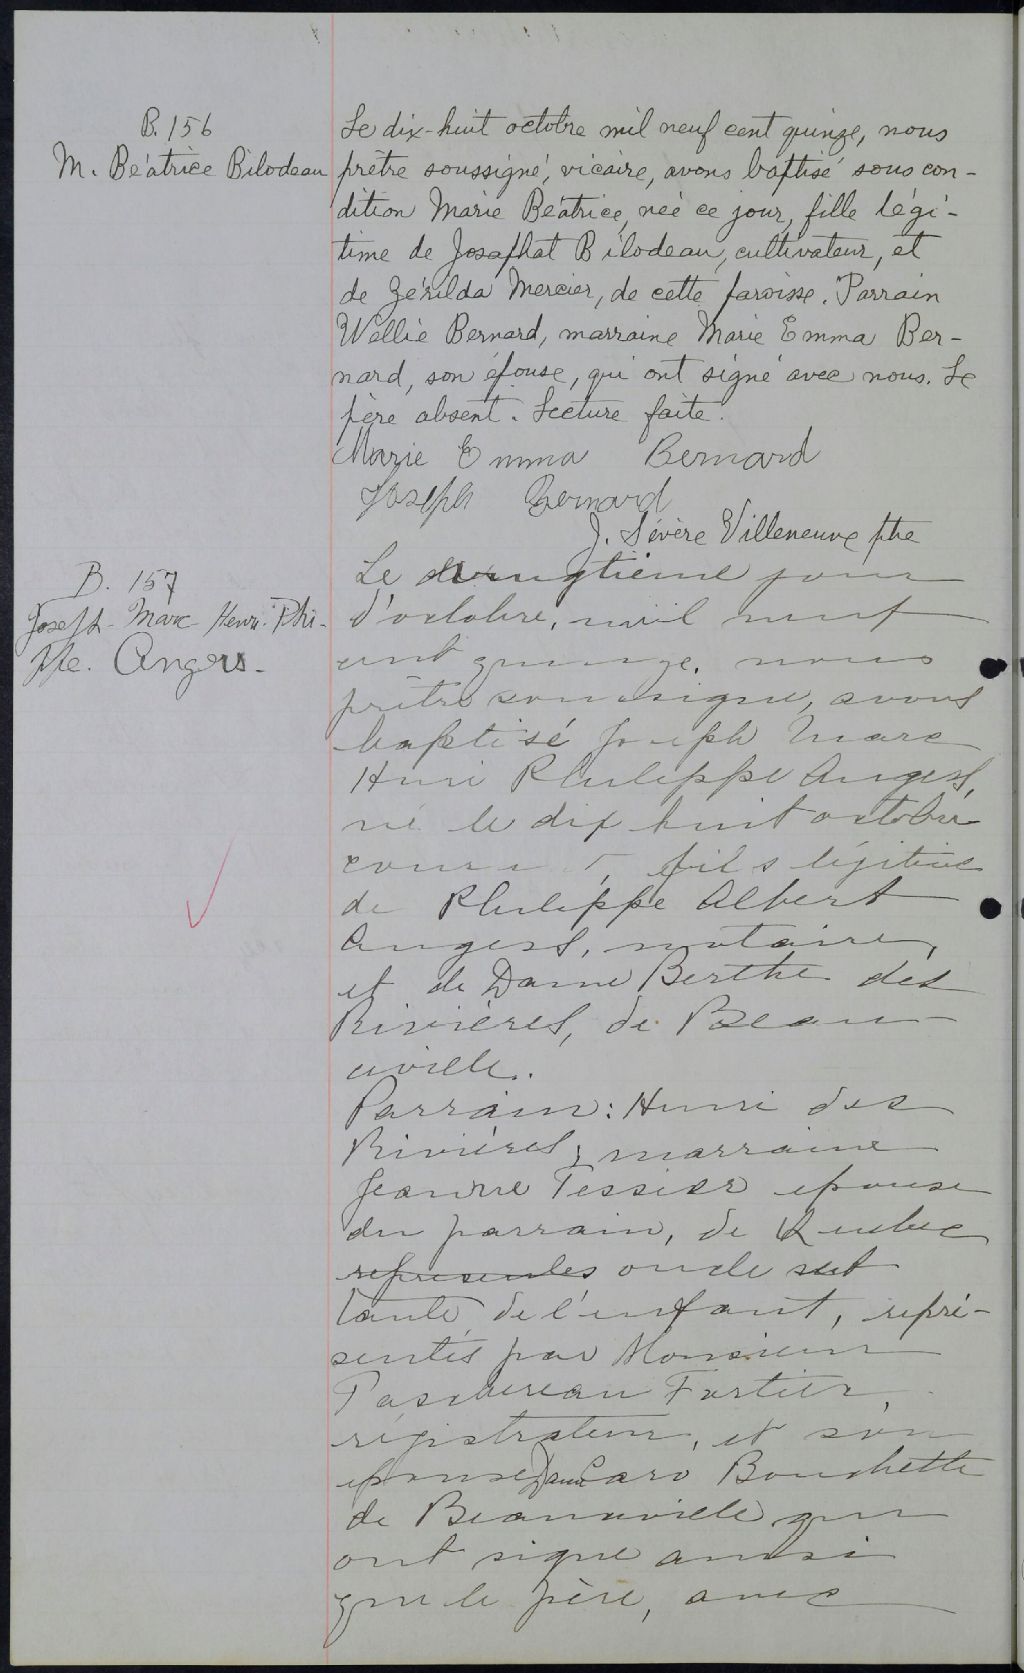 B. 156
M. Béatrice Bilodeau
Le dix-huit octobre mil neuf cent quinze, nous
prêtre soussigné, vicaire, avons baptisé sous con-
dition Marie Béatrice, née ce jour, fille légi-
time de Josaphat Bilodeau, cultivateur, et
de Zérilda Mercier, de cette paroisse. Parrain
Wellie Bernard, marraine Marie Emma Ber-
nard, son épouse, qui ont signé avec nous. Le
père absent. Lecture faite.
Marie Emma Bernard
Joseph Bernard
J. Sévère Villeneuve ptre
B. 157
Joseph-Marc-Henri-Phi-
ppe. Angers.
Le vingtième jour
d'octobre, mil neuf
cent quinze, nous
prêtre soussigné, avons
baptisé Joseph Marc
Henri Philippe Angers,
né le dix huit octobre
courant, fils légitime
de Philippe Albert
Angers, notaire,
et de Dame Berthe des
Rivières, de Beau-
ceville.
Parrain: Henri des
Rivières, marraine
Jeanne Tessier épouse
du parrain, de Québec
représentés oncle et
tante de l'enfant, repré-
sentés par Monsieur
Taschereau Fortier,
régistrateur, et son
épouse Dame Caro Bouchette
de Beauceville qui
ont signé ainsi
que le père, avec